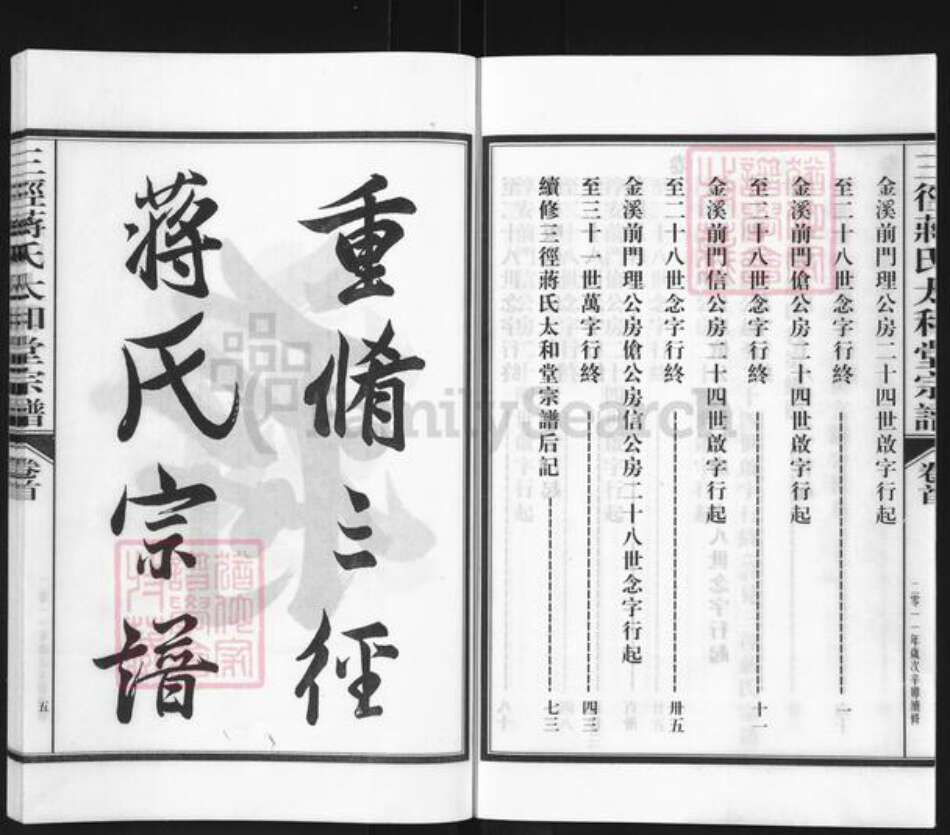 三徑蔣氏太和堂宗譜
卷首
二零一一年歲次辛卯續修
金溪前門理公房二十四世啟字行起
至二十八世念字行終
金溪前門傖公房二十四世啟字行起
至二十八世念字行終 十一
金溪前門信公房二十四世啟字行起
至二十八世念字行終 卅五
金溪前門理公房傖公房信公房二十八世念字行起
至三十一世萬字行終 四三
續修三徑蔣氏太和堂宗譜后記 七三
重脩三徑
蔣氏宗譜
三徑蔣氏太和堂宗譜
卷首
五
FamilySearch